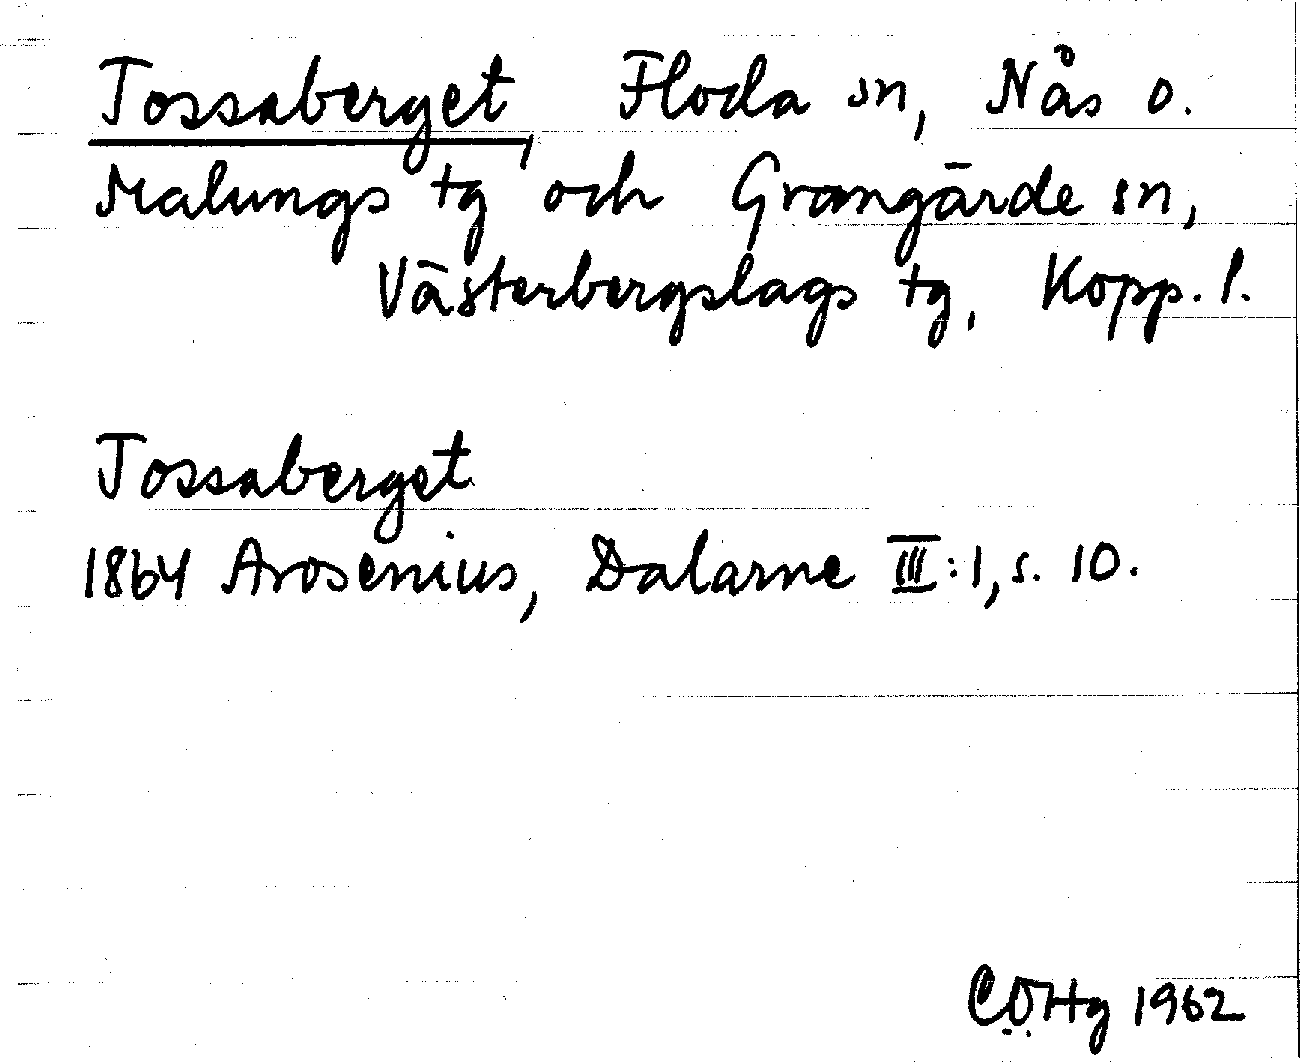 Tossaberget, Floda sn, Nås o.
Malungs tg och Grangärde sn,
Västerbergslags tg, Kopp. l.
Tossaberget
1864 Arosenius, Dalarne III:1, s. 10.
C.O.Hg 1962